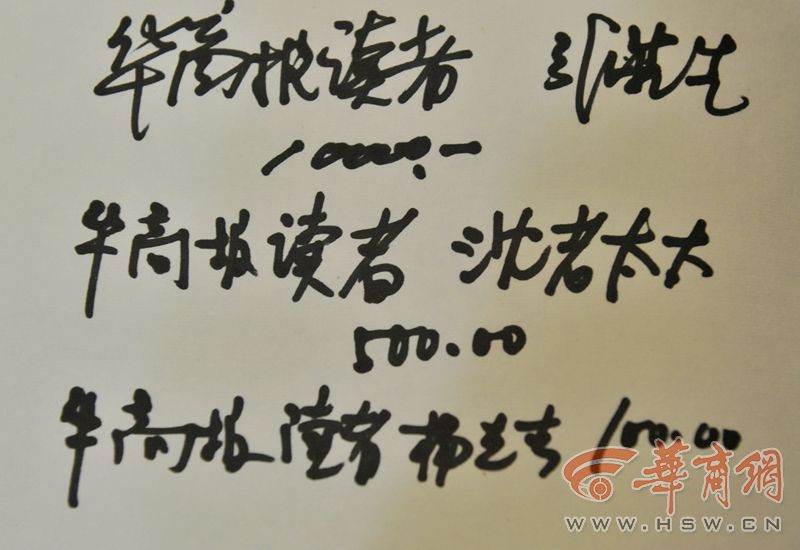 华商报读者
1000.—
华商报读者 沈老太太
500.00
华商报读者 杨先生 100.00
華商網
WWW.HSW.CN